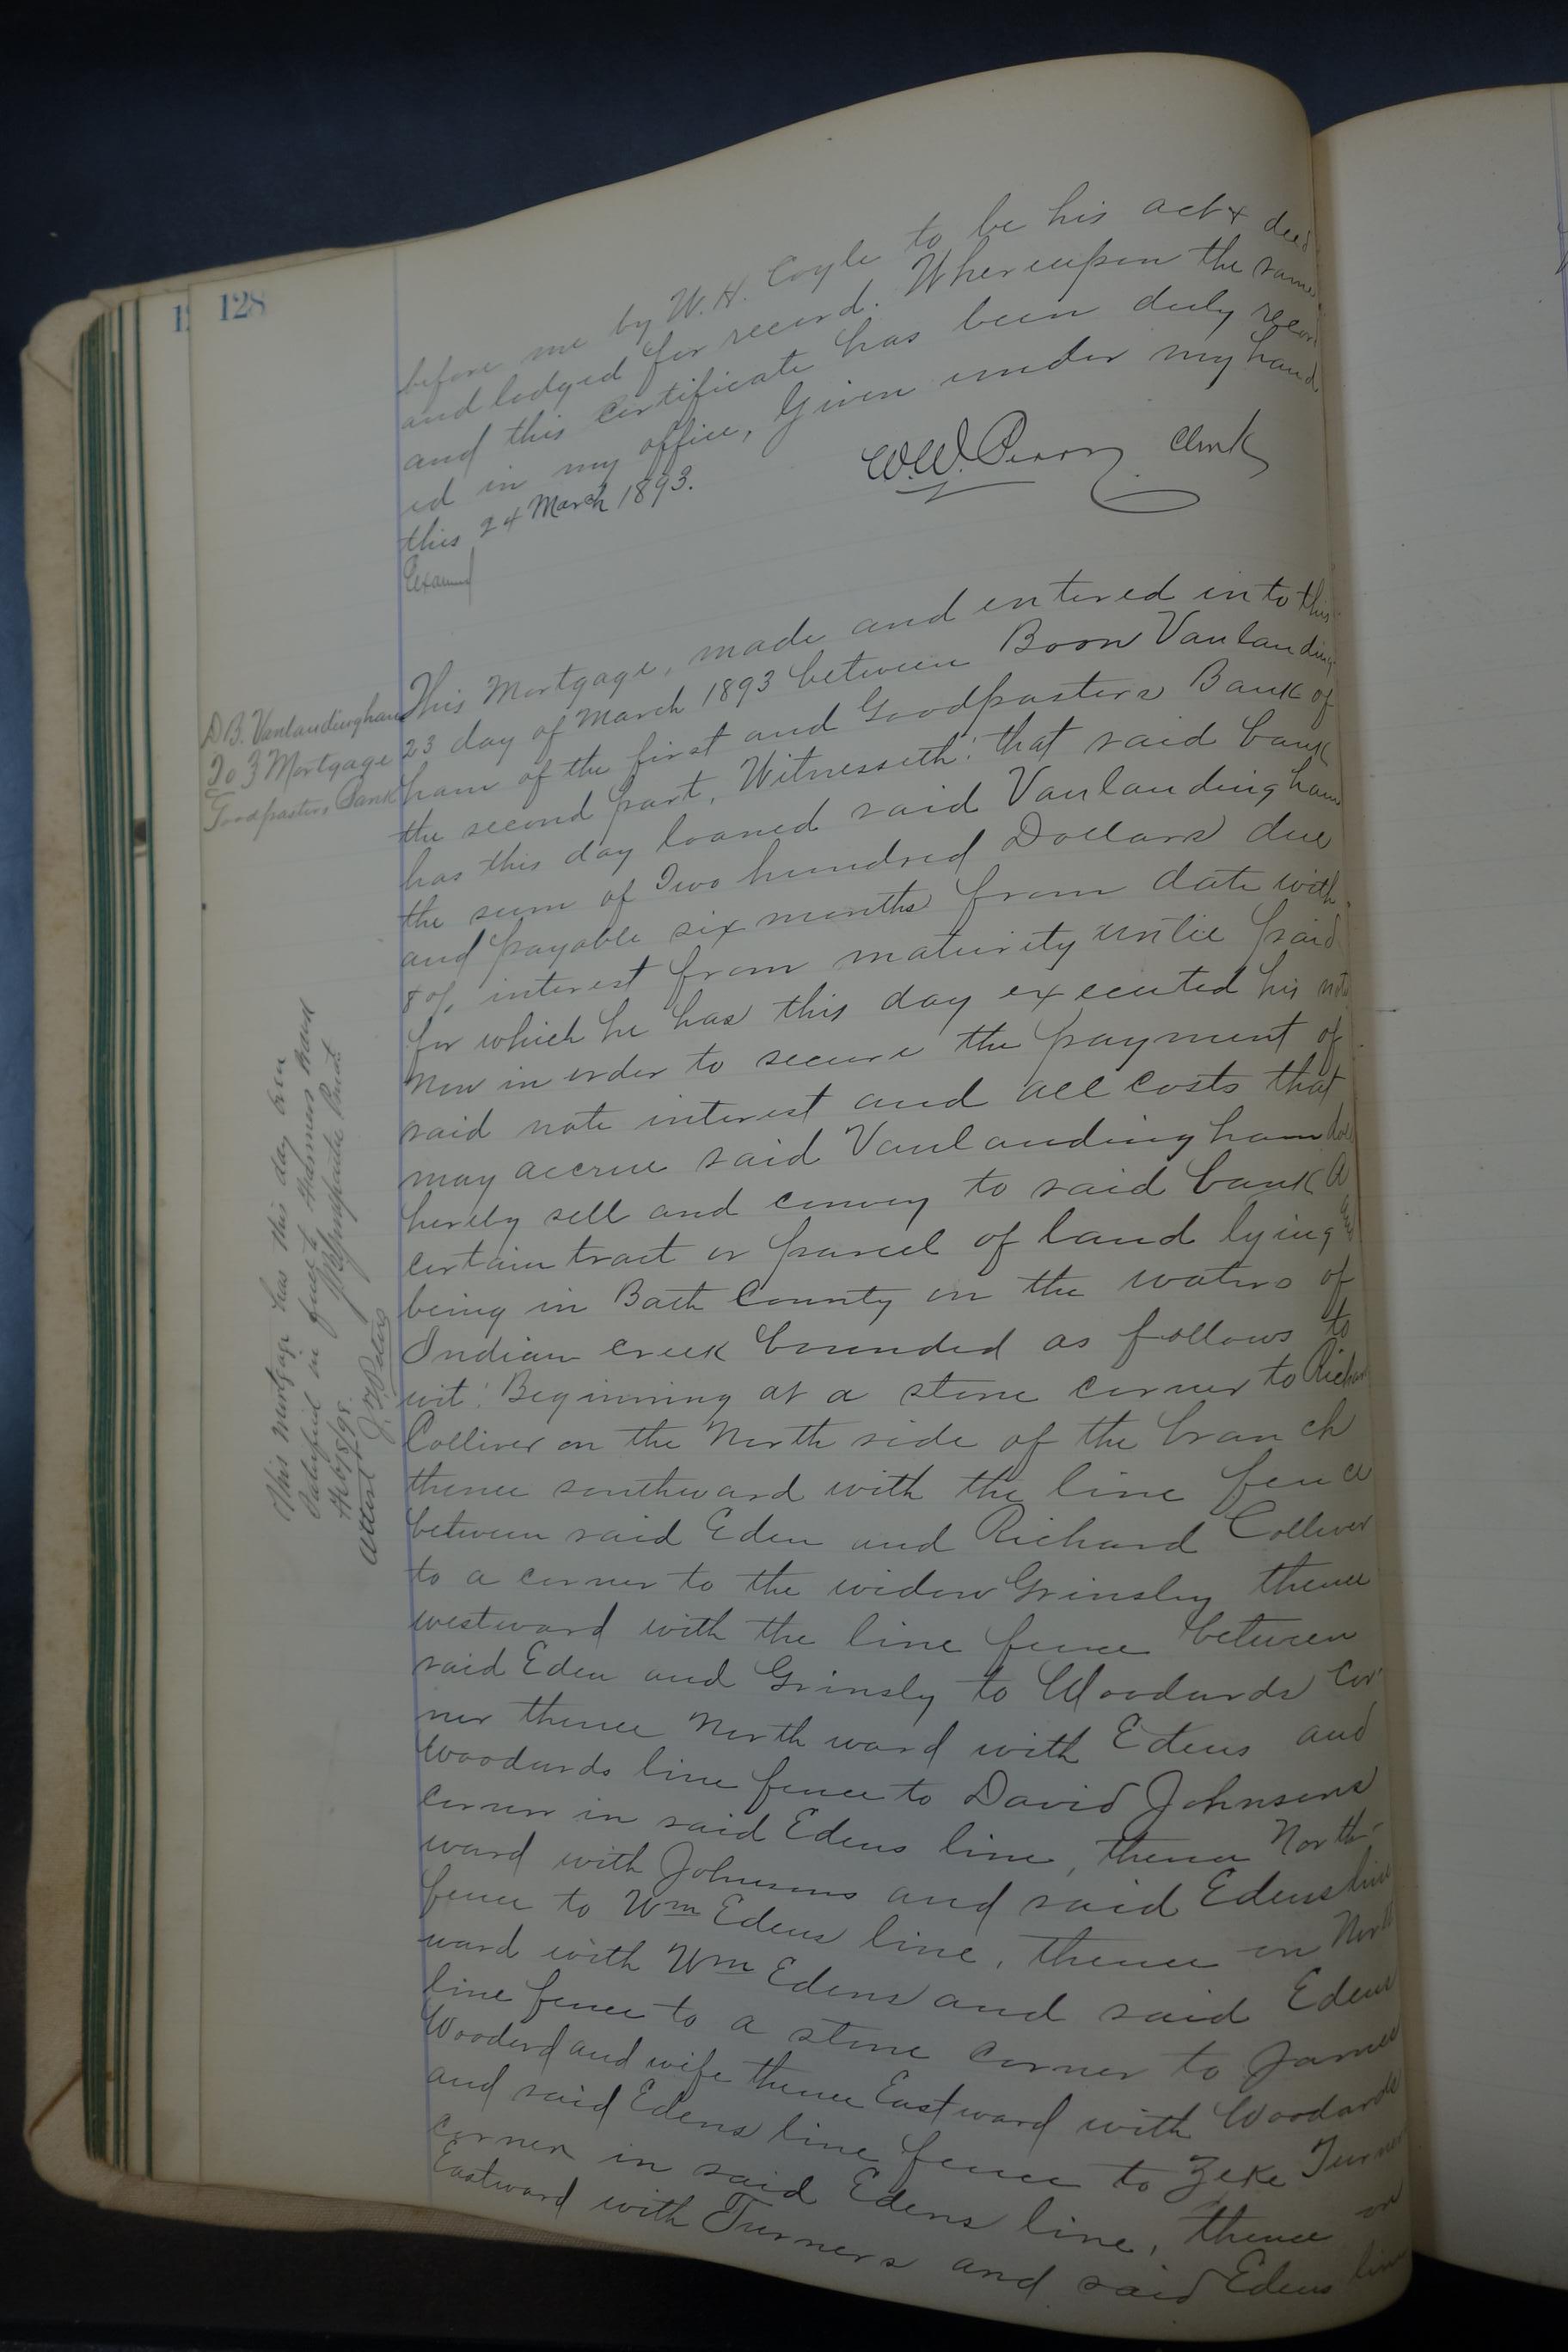 128
before me by W. H. Coyle to be his act & deed
and lodged for record. Whereupon the same
and this certificate has been duly record
ed in my office, Given under my hand
this 24 March 1893.
W.W. Perry Clerk
Examd
D B. Vanlandingham
To } Mortgage
Goodpasters Bank
This Mortgage, made and entered into this
23 day of March 1893 between Boon Vanlanding
ham of the first and Goodpasters Bank of
the second part, Witnesseth: that said bank
has this day loaned said Vanlandingham
the sum of Two hundred Dollars due
and payable six months from date with
8% interest from maturity until paid
for which he has this day executed his note
Now in order to secure the payment of
said note interest and all costs that
may accrue said Vanlandingham does
hereby sell and convey to said bank a
certain tract or parcel of land lying and
being in Bath County on the waters of
Indian creek bounded as follows to
wit: Beginning at a stone corner to Richard
Colliver on the North side of the branch
thence southward with the line fence
between said Eden and Richard Colliver
to a corner to the widow Grinsley thence
westward with the line fence between
said Eden and Grinsly to Woodards cor-
ner thence North ward with Edens and
Woodards line fence to David Johnsons
corner in said Edens line, thence North-
ward with Johnsons and said Edens line
fence to Wm Edens line, thence on North
ward with Wm Edens and said Edens
line fence to a stone corner to James
Woodard and wife thence Eastward with Woodards
and said Edens line fence to Zeke Turners
corner in said Edens line, thence on
Eastward with Turners and said Edens line
This Mortgage has this day been
Satisfied in full Witness hand
Feb/5/98.
Attest